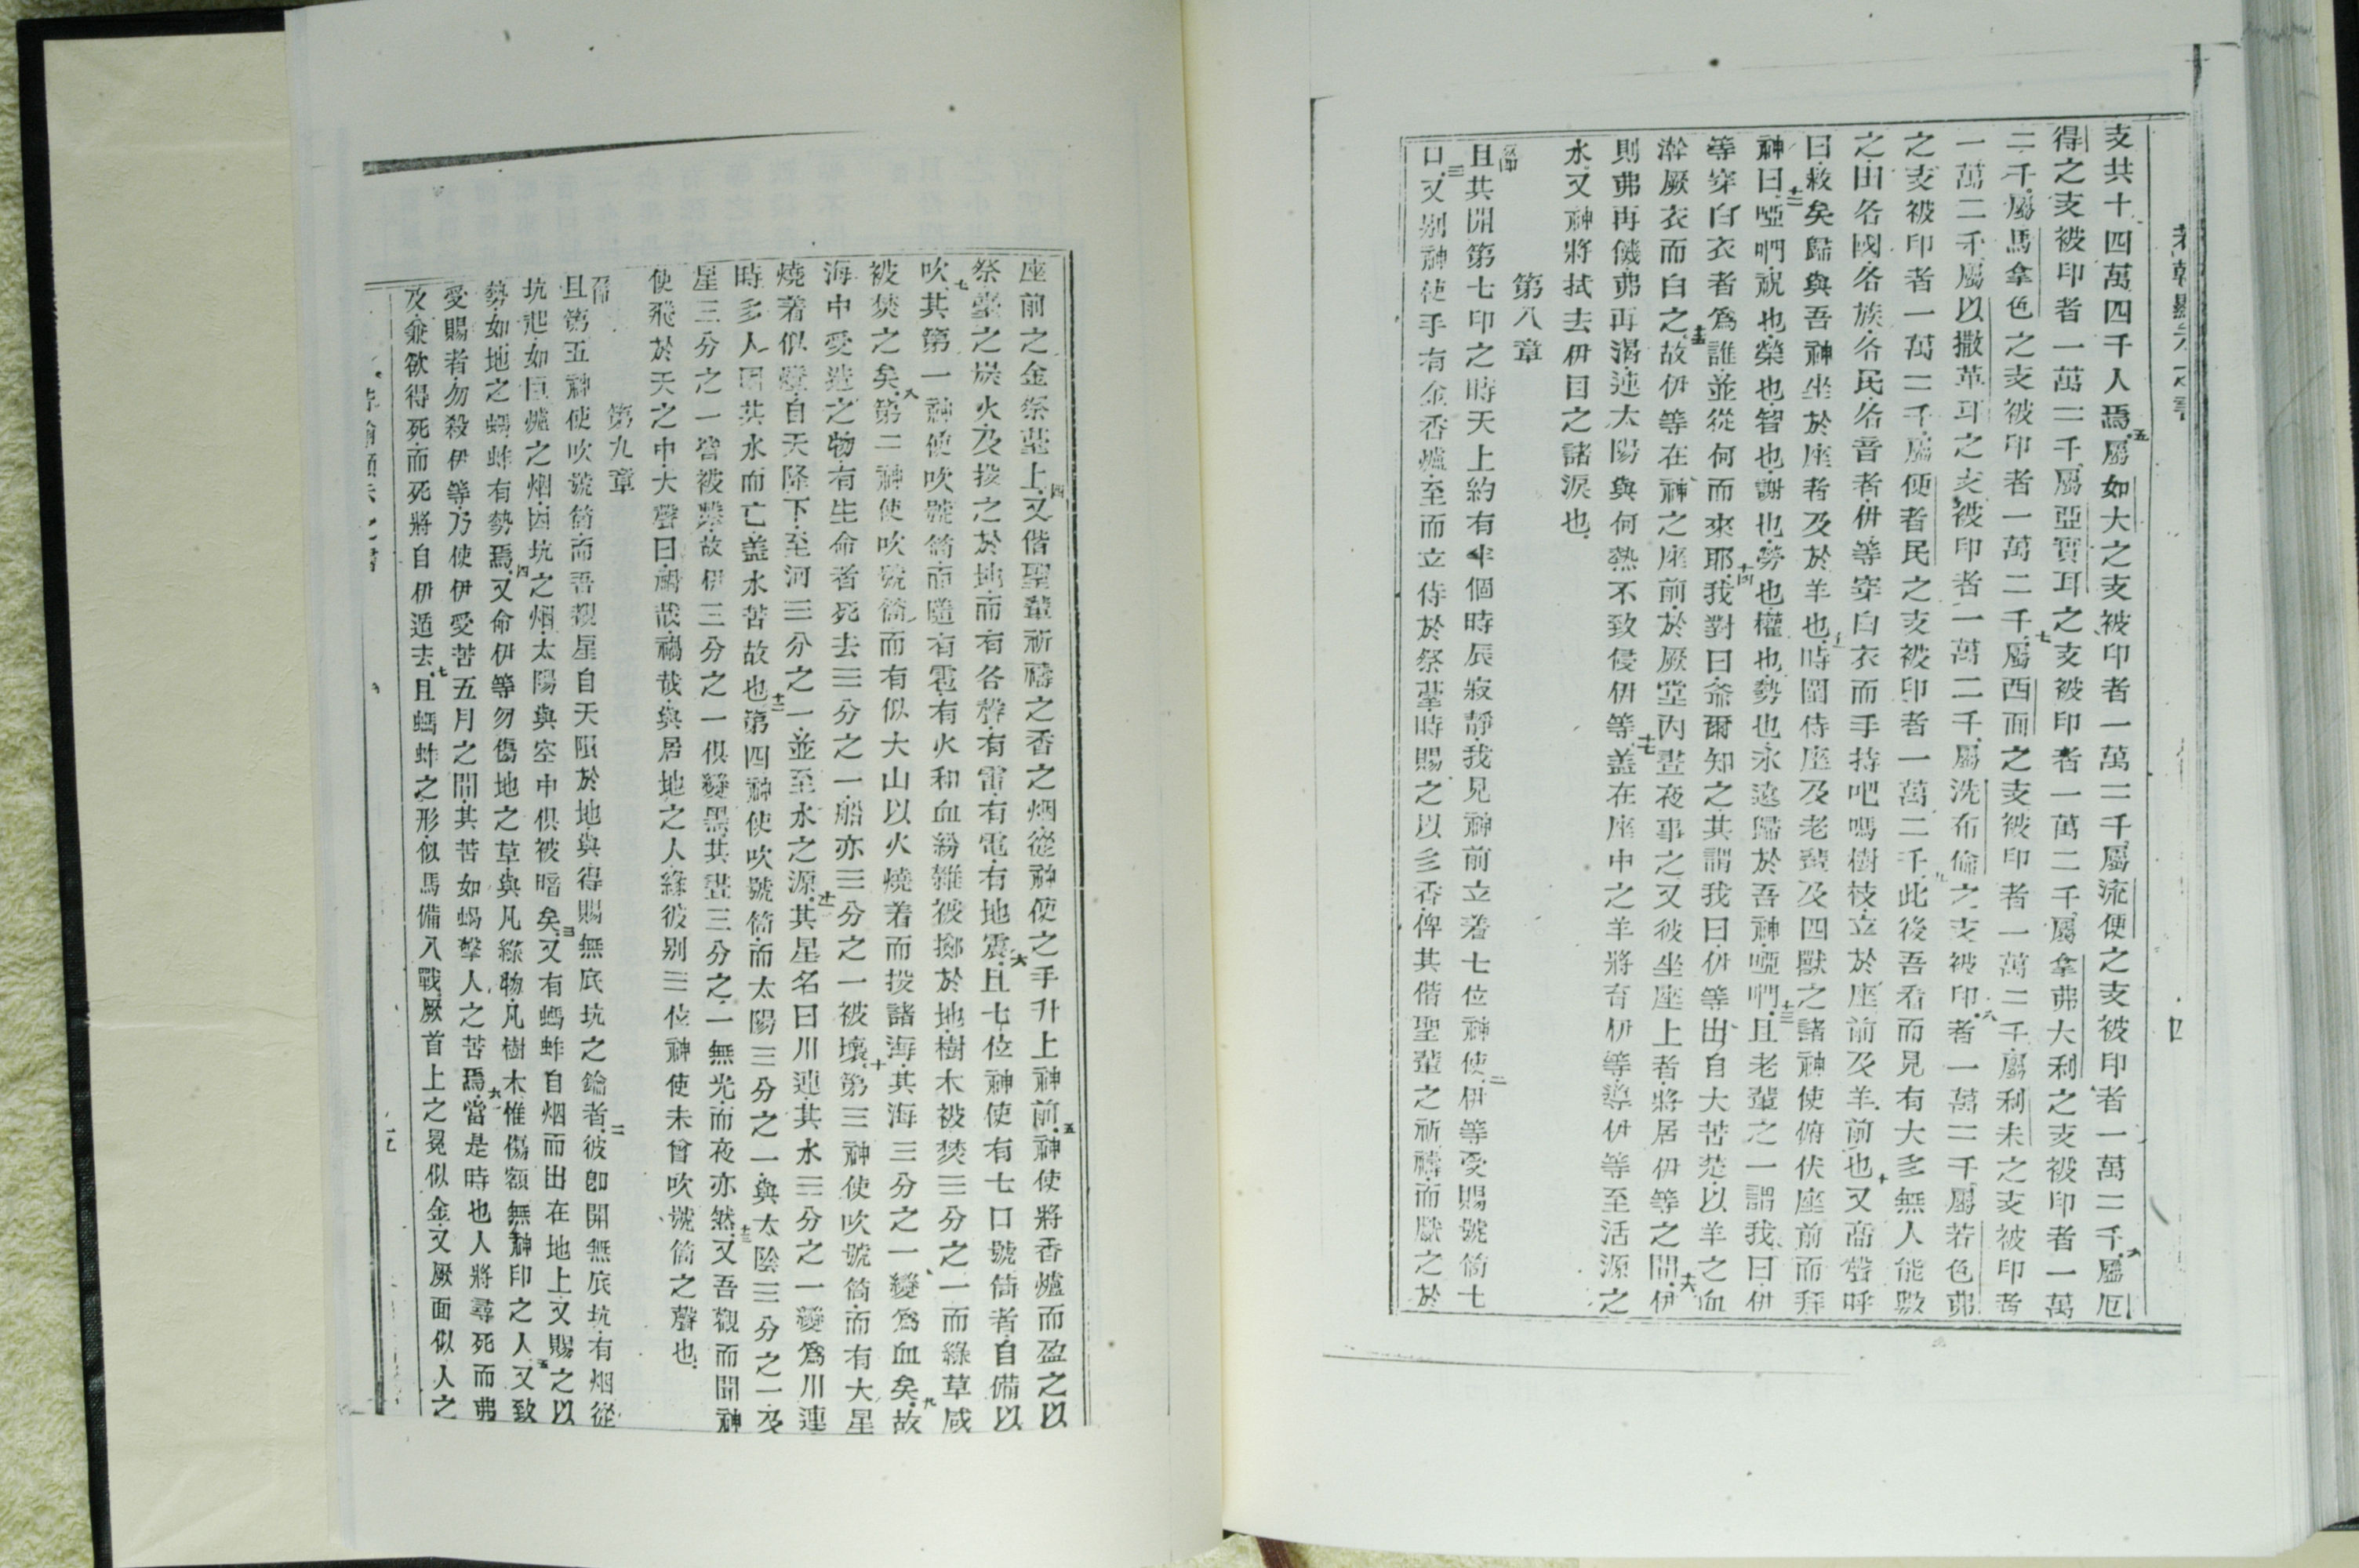 支共十四萬四千人焉五屬如大之支被印者一萬二千屬流便之支被印者一萬二千六屬厄
得之支被印者一萬二千屬亞實耳之支被印者一萬二千屬拿弗大利之支被印者一萬
二千屬馬拿色之支被印者一萬二千七屬西面之支被印者一萬二千屬利未之支被印者
一萬二千屬以撒革耳之支被印者一萬二千屬洗布倫之支被印八者一萬二千屬若色弗
之支被印者一萬二千屬便者民之支被印者一萬二千九此後吾看而見有大多無人能數
之由各國各族各民各音者伊等穿白衣而手持吧嗎樹枝立於座前及羊前也十又高聲呼
曰救矣歸與吾神坐於座者及於羊也十一時圍侍座及老輩及四獸之諸神使俯伏座前而拜
神曰十二啞㖿祝也榮也智也謝也勞也權也勢也永遠歸於吾神啞㖿十三且老輩之一謂我曰伊
等穿白衣者爲誰並從何而來耶十四我對曰爺爾知之其謂我曰伊等出自大苦楚以羊之血
澣厥衣而白之十五故伊等在神之座前於厥堂內晝夜事之又彼坐座上者將居伊等之間十六伊
則弗再饑弗再渴連太陽與何熱不致侵伊等十七蓋在座中之羊將育伊等導伊等至活源之
水又神將拭去伊目之諸淚也
第八章
且其開第七印之時天上約有半個時辰寂靜我見神前立着七位神使二伊等受賜號筒七
口三又別神使手有金香爐至而立侍於祭臺時賜之以多香俾其偕聖輩之祈禱而獻之於
四
座前之金祭臺上四又偕聖輩祈禱之香之烟從神使之手升上神前五神使將香爐而盈之以
祭臺之炭火及投之於地而有各聲有雷有電有地震六且七位神使有七口號筒者自備以
吹七其第一神使吹號筒而隨有雹有火和血紛雜被擲於地樹木被焚三分之一而綠草咸
被焚之矣八第二神使吹號筒而有似大山以火燒着而投諸海其海三分之一變爲血矣九故
海中受造之物有生命者死去三分之一船亦三分之一被壞十第三神使吹號筒而有大星
燒着似燈自天降下至河三分之一並至水之源十一其星名曰川連其水三分之一變爲川連
時多人因其水而亡蓋水苦故也十二第四神使吹號筒而太陽三分之一與太陰三分之一及
星三分之一皆被擊故伊三分之一俱變黑其晝三分之一無光而夜亦然十三又吾觀而聞神
使飛於天之中大聲曰禍哉禍哉與居地之人緣彼別三位神使未曾吹號筒之聲也
第九章
且第五神使吹號筒而吾覩星自天隕於地與得賜無底坑之鑰者二彼卽開無底坑有烟從
坑起如巨爐之烟因坑之烟太陽與空中俱被暗矣三又有螞蚱自烟而出在地上又賜之以
勢如地之蝎蚱有勢焉四又命伊等勿傷地之草與凡綠物凡樹木惟傷額無神印之人五又致
受賜者勿殺伊等乃使伊受苦五月之間其苦如蝎擊人之苦焉六當是時也人將尋死而弗
及兼欲得死而死將自伊遁去七且螞蚱之形似馬備入戰厥首上之冕似金又厥面似人之